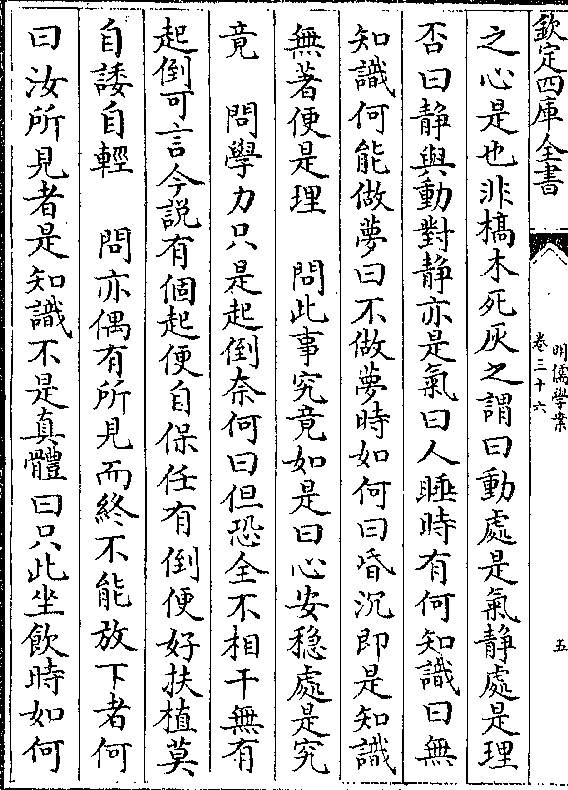 欽定四庫全書
明儒學案
卷三十六
五
之心是也非槁木死灰之謂曰動處是氣静處是理
否曰静與動對静亦是氣曰人睡時有何知識曰無
知識何能做夢曰不做夢時如何曰昏沉即是知識
無著便是理　問此事究竟如是曰心安穏處是究
竟　問學力只是起倒奈何曰但恐全不相干無有
起倒可言今説有個起便自保任有倒便好扶植莫
自諉自輕　問亦偶有所見而終不能放下者何
曰汝所見者是知識不是真體曰只此坐飲時如何